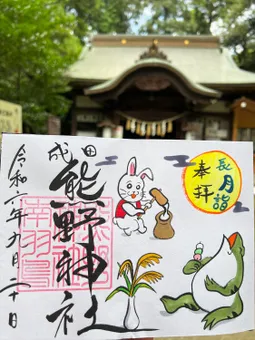 長月詣
奉拝
成田
熊野神社
令和六年九月二十日